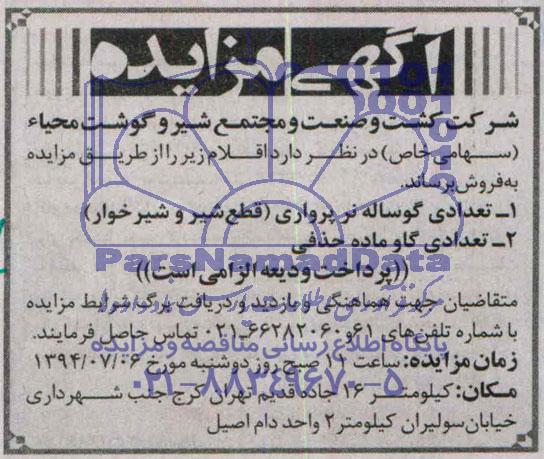 آگهی مزایده
شرکت کشت و صنعت و مجتمع شیر و گوشت محیاء
(سهامی خاص) در نظر دارد اقلام زیر را از طریق مزایده
به فروش برساند.
۱ـ تعدادی گوساله نر پرواری (قطع شیر و شیر خوار)
۲ـ تعدادی گاو ماده حذفی
ParsNamadData
((پرداخت ودیعه الزامی است))
متقاضیان جهت هماهنگی و بازدید و دریافت برگه شرایط مزایده
با شماره تلفن‌های ۶۱و۶۶۲۸۲۰۶۰-۰۲۱ تماس حاصل فرمایند.
پایگاه اطلاع رسانی مناقصه و مزایده
زمان مزایده: ساعت ۱۱ صبح روز دوشنبه مورخ ۱۳۹۴/۰۷/۰۶
۰۲۱-۸۸۳۴۹۶۷۰-۵
مکان: کیلومتر ۱۶ جاده قدیم تهران کرج جنب شهرداری
خیابان سولیران کیلومتر ۲ واحد دام اصیل